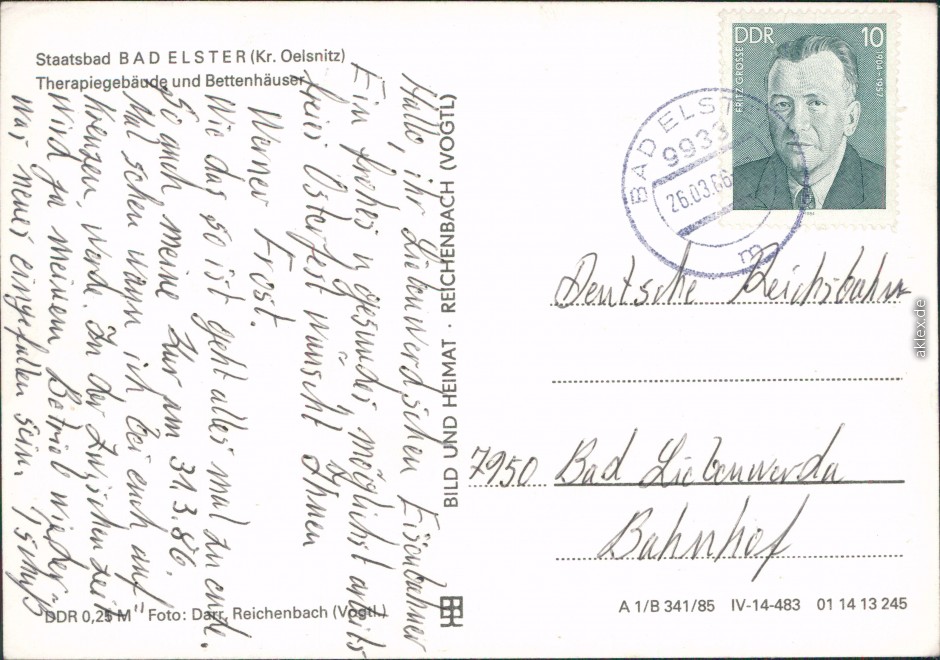 Staatsbad BAD ELSTER (Kr. Oelsnitz)
Therapiegebäude und Bettenhäuser
Hallo, ihr Liebenwerdschen Eisenbahner
Ein frohes u. gesundes, möglichst arbeits
freies Osterfest wünscht Ihnen
Werner Frost.
Wie das so ist geht alles mal zu ende.
So auch meine Kur am 31.3.86.
Mal sehen wann ich bei euch auf
kreuzen werd. In der Zwischenzeit
wird ja meinem Betrieb wieder
was neues eingefallen sein. Tschüß
DDR 0,25 M Foto: Darr, Reichenbach (Vogtl.)
BILD UND HEIMAT · REICHENBACH (VOGTL)
DDR 10
FRITZ GROSSE
1904–1957
BAD ELST
9933
26.03.86
m
Deutsche Reichsbahn
7950 Bad Liebenwerda
Bahnhof
A 1/B 341/85 IV-14-483 01 14 13 245
aklex.de